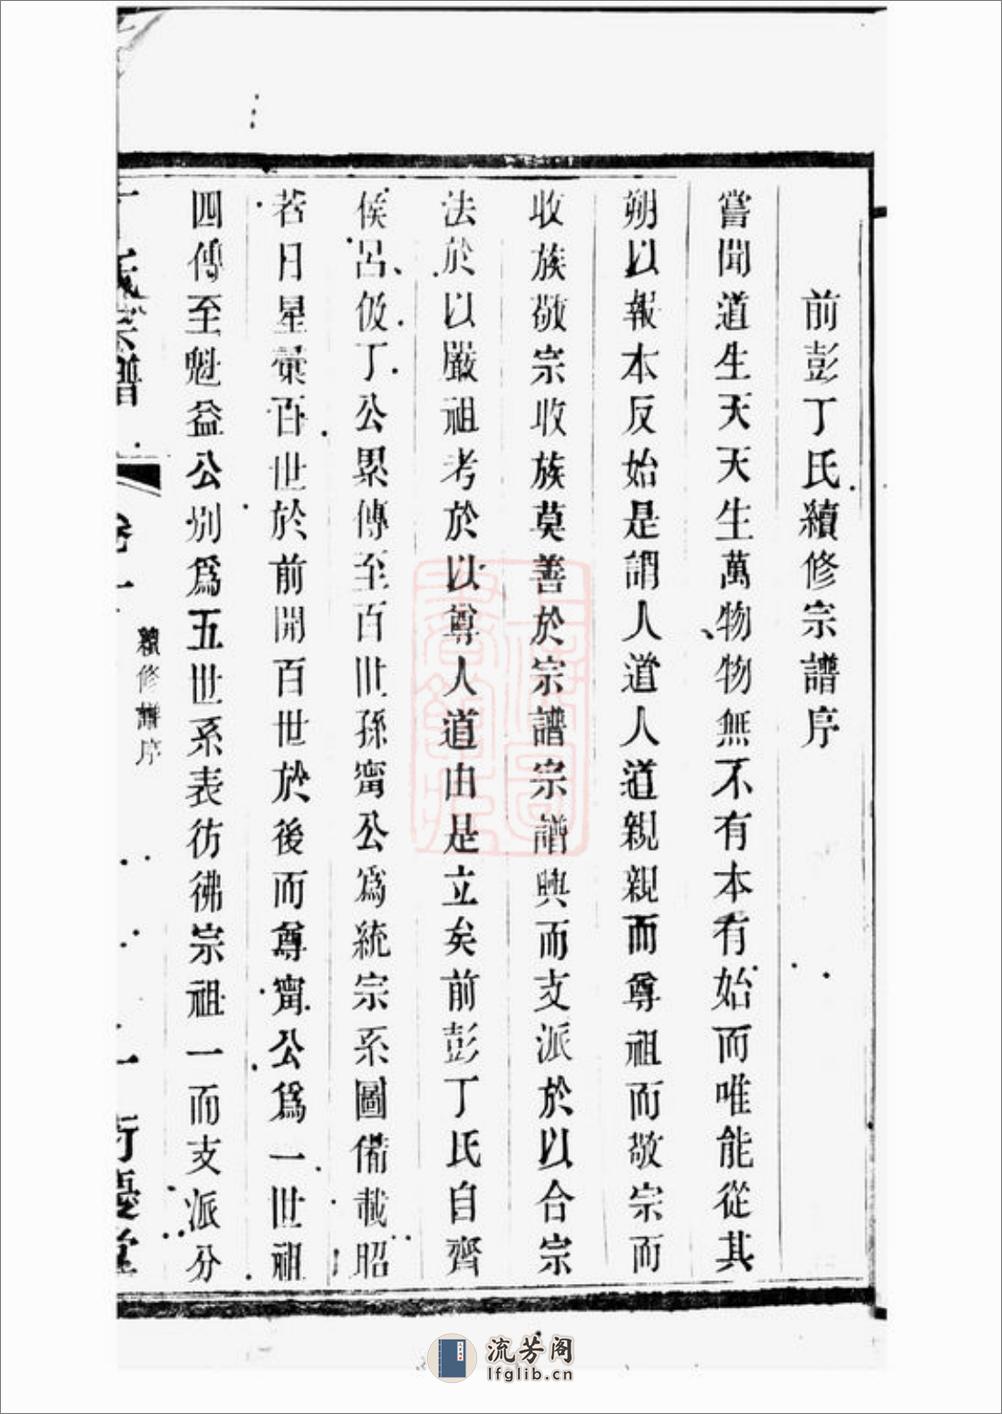 前彭丁氏續修宗譜序
嘗聞道生天天生萬物物無不有本有始而唯能從其
朔以報本反始是謂人道人道親親而尊祖而敬宗而
收族敬宗收族莫善於宗譜宗譜興而支派於以合宗
法於以嚴祖考於以尊人道由是立矣前彭丁氏自齊
侯呂伋丁公累傳至百世孫甯公爲統宗系圖備載昭
若日星彙百世於前開百世於後而尊甯公爲一世祖
四傳至魁益公別爲五世系表彷彿宗祖一而支派分
氏宗譜
卷一
續修譜序
一
衍慶堂
流芳阁
lfglib.cn